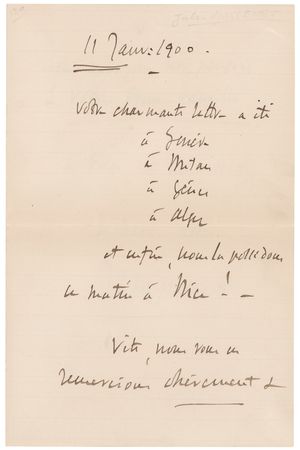 11 Janv: 1900.
votre charmante lettre a été
à Genève
à Milan
à Gênes
à Alger
et enfin, nous la possédons
ce matin à Nice! —
Vite, nous vous en
remercions chèrement &